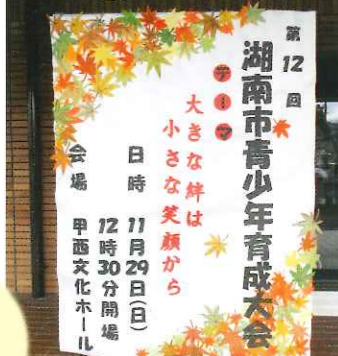 第12回
湖南市青少年育成大会
テーマ
大きな絆は
小さな笑顔から
日時 11月29日(日)
12時30分開場
会場 甲西文化ホール